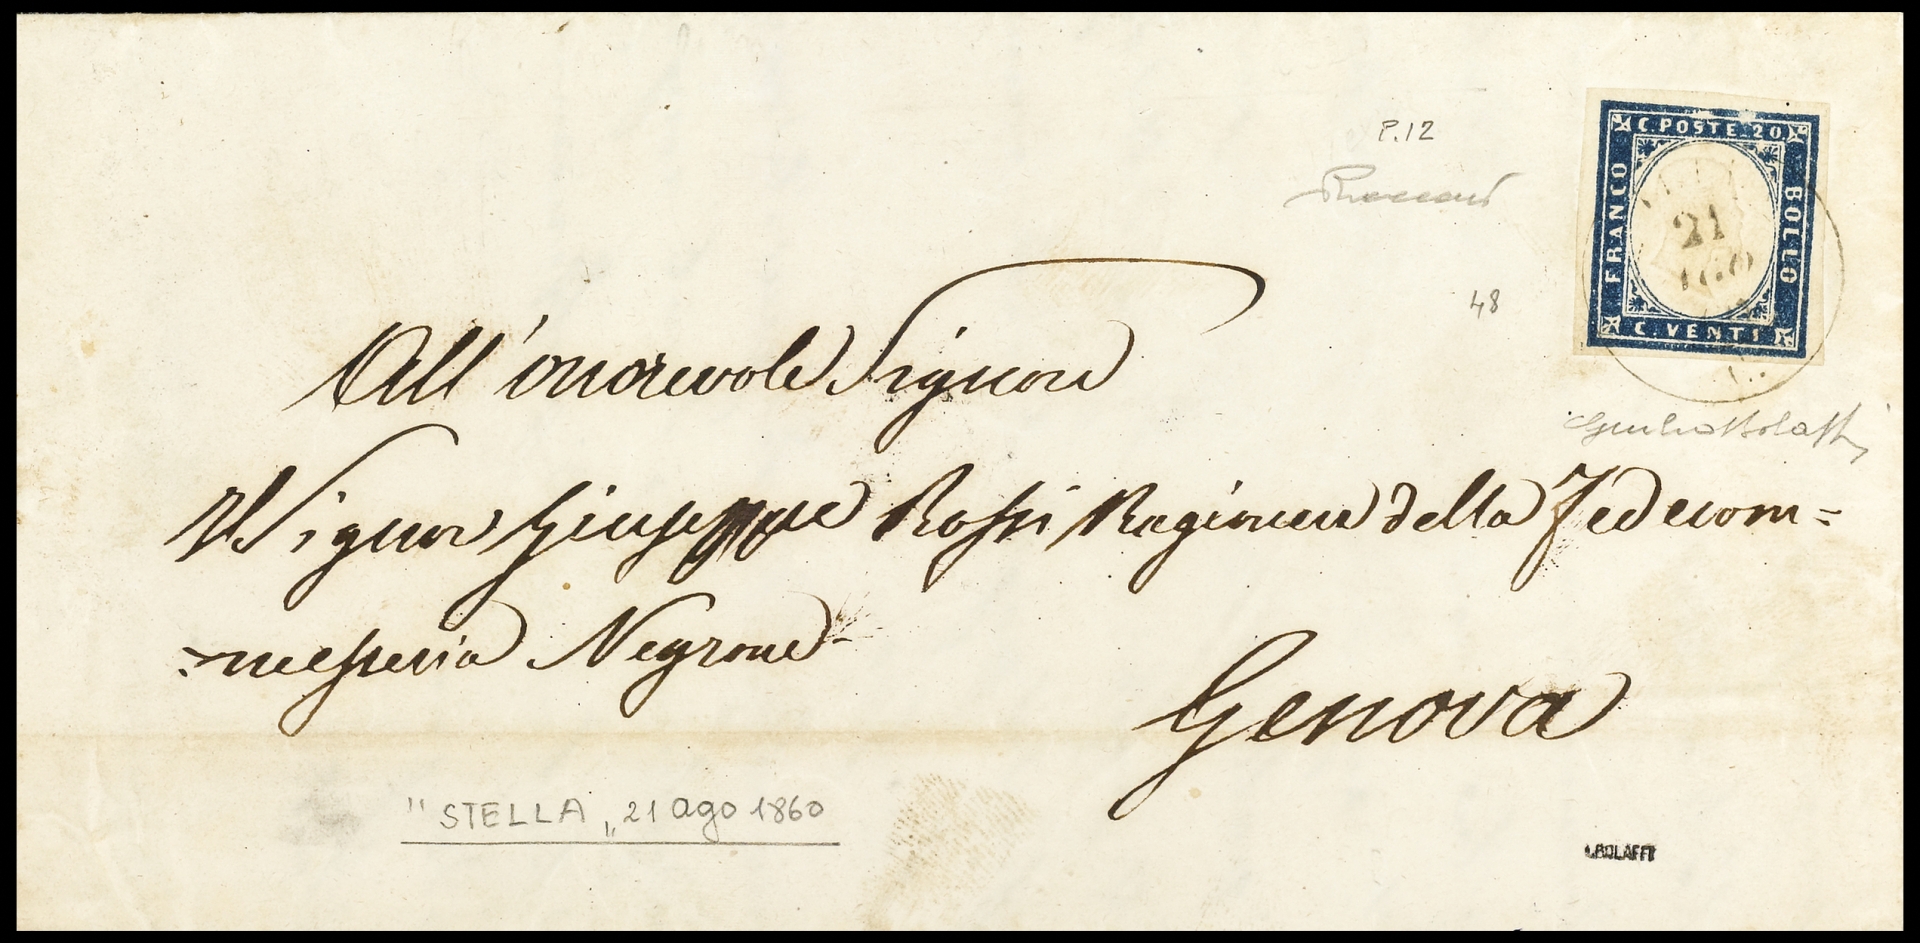 P.12
C. POSTE 20
FRANCO
BOLLO
C. VENTI
21
AGO
48
All'onorevole Signore
Il Signor Giuseppe Rossi Ragioniere della Fedecom=
=messeria Negrone
Genova
Giulio Bolaffi
"STELLA" 21 ago 1860
A.BOLAFFI